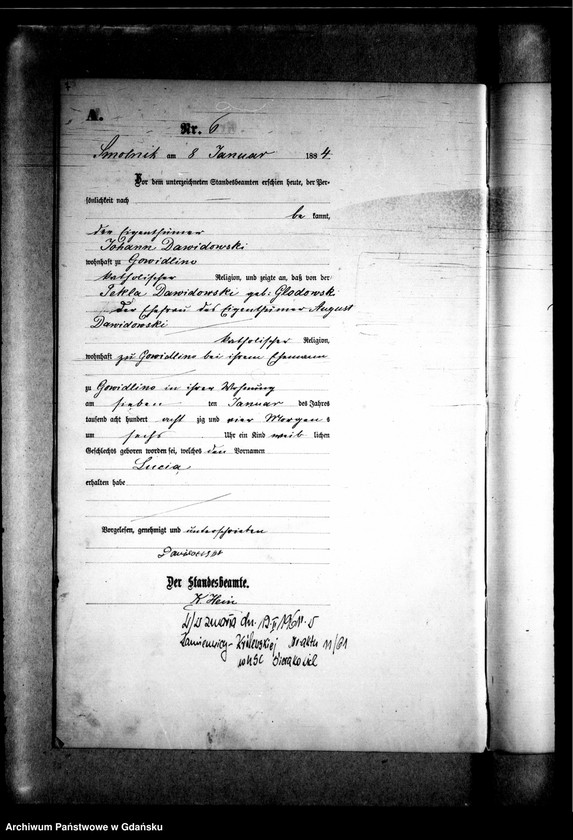 A.
Nr. 6
Smolnik am 8 Januar 1884.
Vor dem unterzeichneten Standesbeamten erschien heute, der Per-
sönlichkeit nach
bekannt,
der Eigenthümer
Johann Dawidowski
wohnhaft zu Gowidlino
katholischer Religion, und zeigte an, daß von der
Tekla Dawidowski geb: Glodowski
der Ehefrau des Eigenthümer August
Dawidowski
katholischer Religion,
wohnhaft zu Gowidlino bei ihrem Ehemann
zu Gowidlino in ihrer Wohnung
am sieben ten Januar des Jahres
tausend acht hundert acht zig und vier Morgens
um sechs Uhr ein Kind weib lichen
Geschlechts geboren worden sei, welches den Vornamen
Lucia
erhalten habe
Vorgelesen, genehmigt und unterschrieben
Der Standesbeamte.
K. Hein
W/w zmarła dn. 1961 r. w
Kamienicy-Królewskiej Nr aktu 11/61
w USC Sierakowice
Archiwum Państwowe w Gdańsku